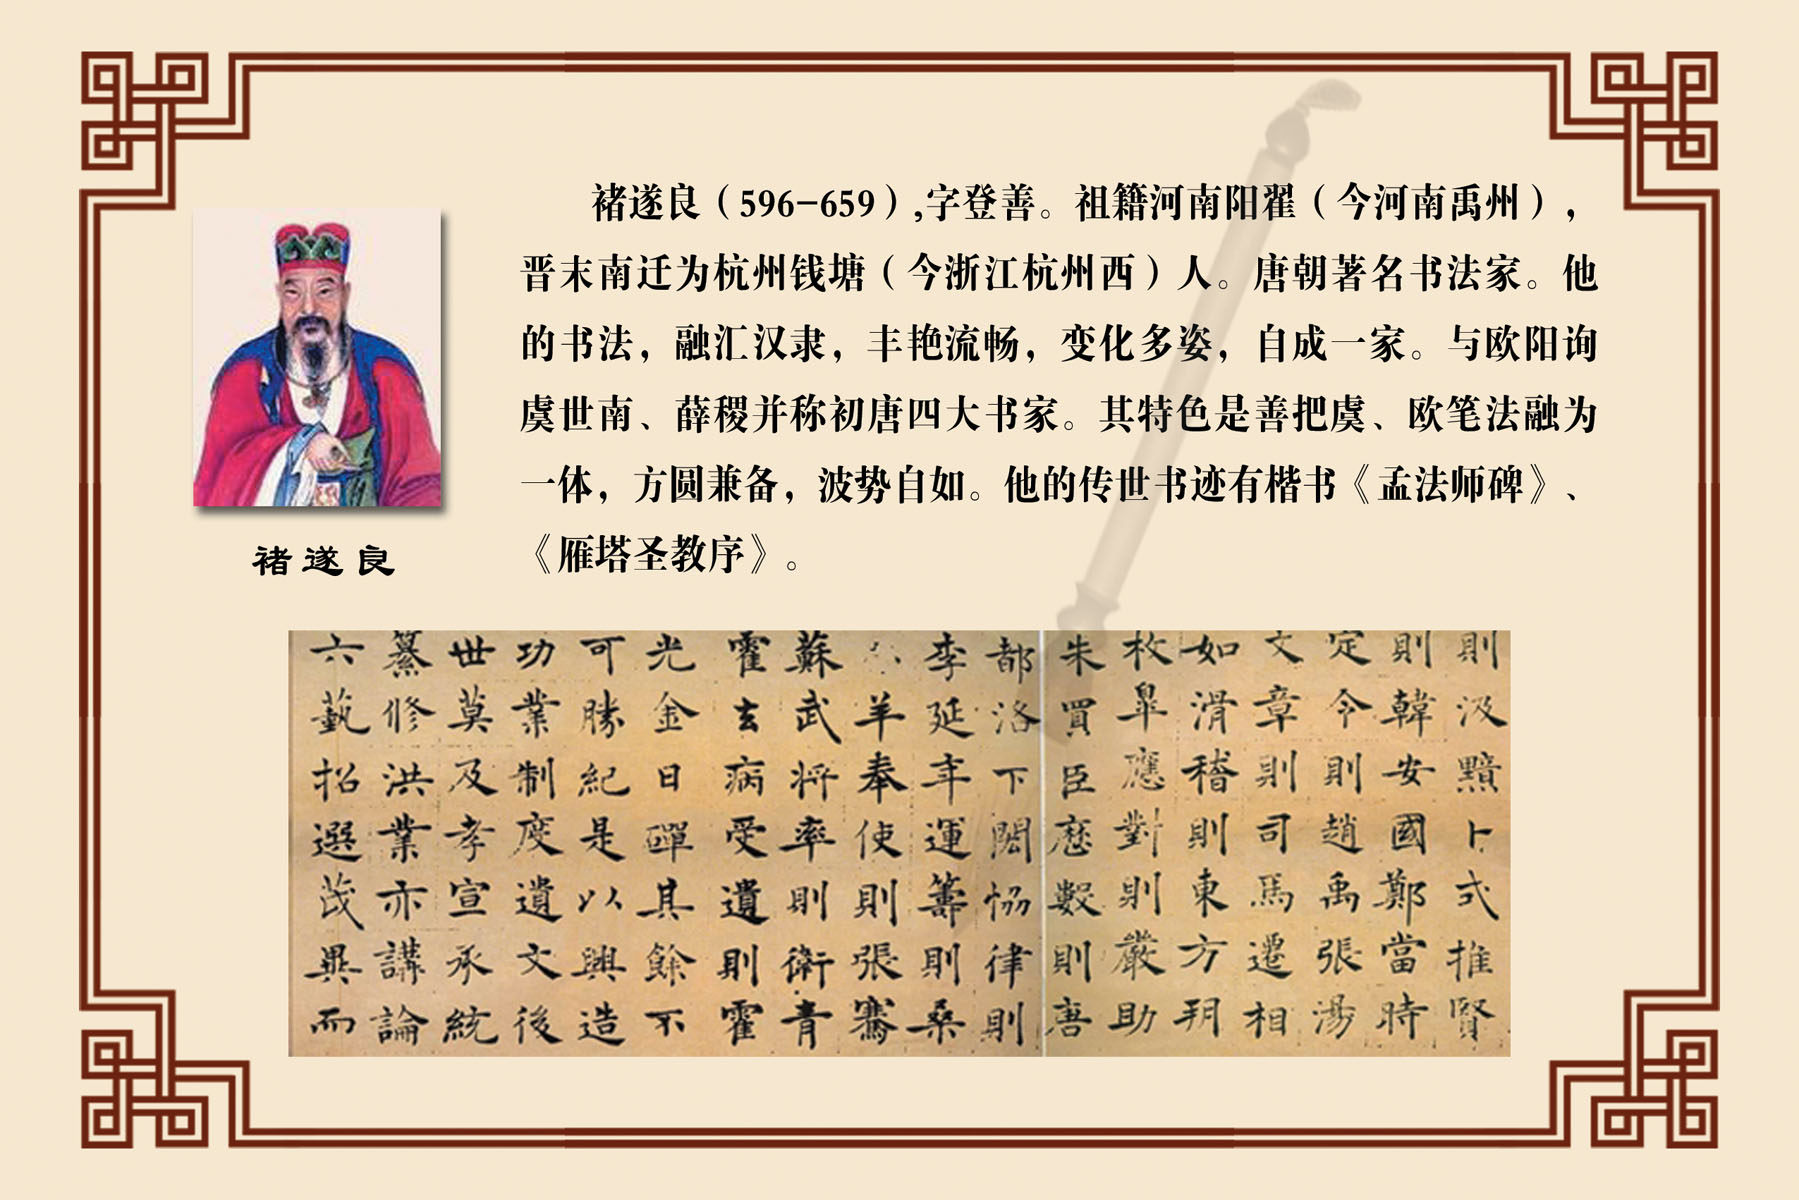 褚遂良（596-659）,字登善。祖籍河南阳翟（今河南禹州），
晋末南迁为杭州钱塘（今浙江杭州西）人。唐朝著名书法家。他
的书法，融汇汉隶，丰艳流畅，变化多姿，自成一家。与欧阳询
虞世南、薛稷并称初唐四大书家。其特色是善把虞、欧笔法融为
一体，方圆兼备，波势自如。他的传世书迹有楷书《孟法师碑》、
《雁塔圣教序》。
褚遂良
則汲黯卜式推賢
則韓安國鄭當時
定令則趙禹張湯
文章則司馬遷相
如滑稽則東方朔
枚皐應對則嚴助
朱買臣歷數則唐
都洛下閎恊律則
李延年運籌則桑
羊奉使則張騫
蘇武將率則衛青
霍去病受遺則霍
光金日磾其餘不
可勝紀是以興造
功業制度遺文後
世莫及孝宣承統
纂修洪業亦講論
六藝招選茂異而